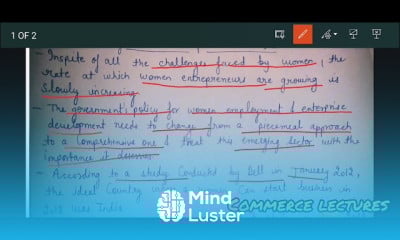 1 OF 2
- Inspite of all the challenges faced by women, the
rate at which women entrepreneurs are growing is
slowly increasing
- The government's policy for women employment & enterprise
development needs to change from a piecemeal approach
to a comprehensive one & treat this emerging sector with the
importance it deserves
- According to a study conducted by Dell in January 2012,
the ideal Country can start business in
India
Mind
Luster
COMMERCE LECTURES